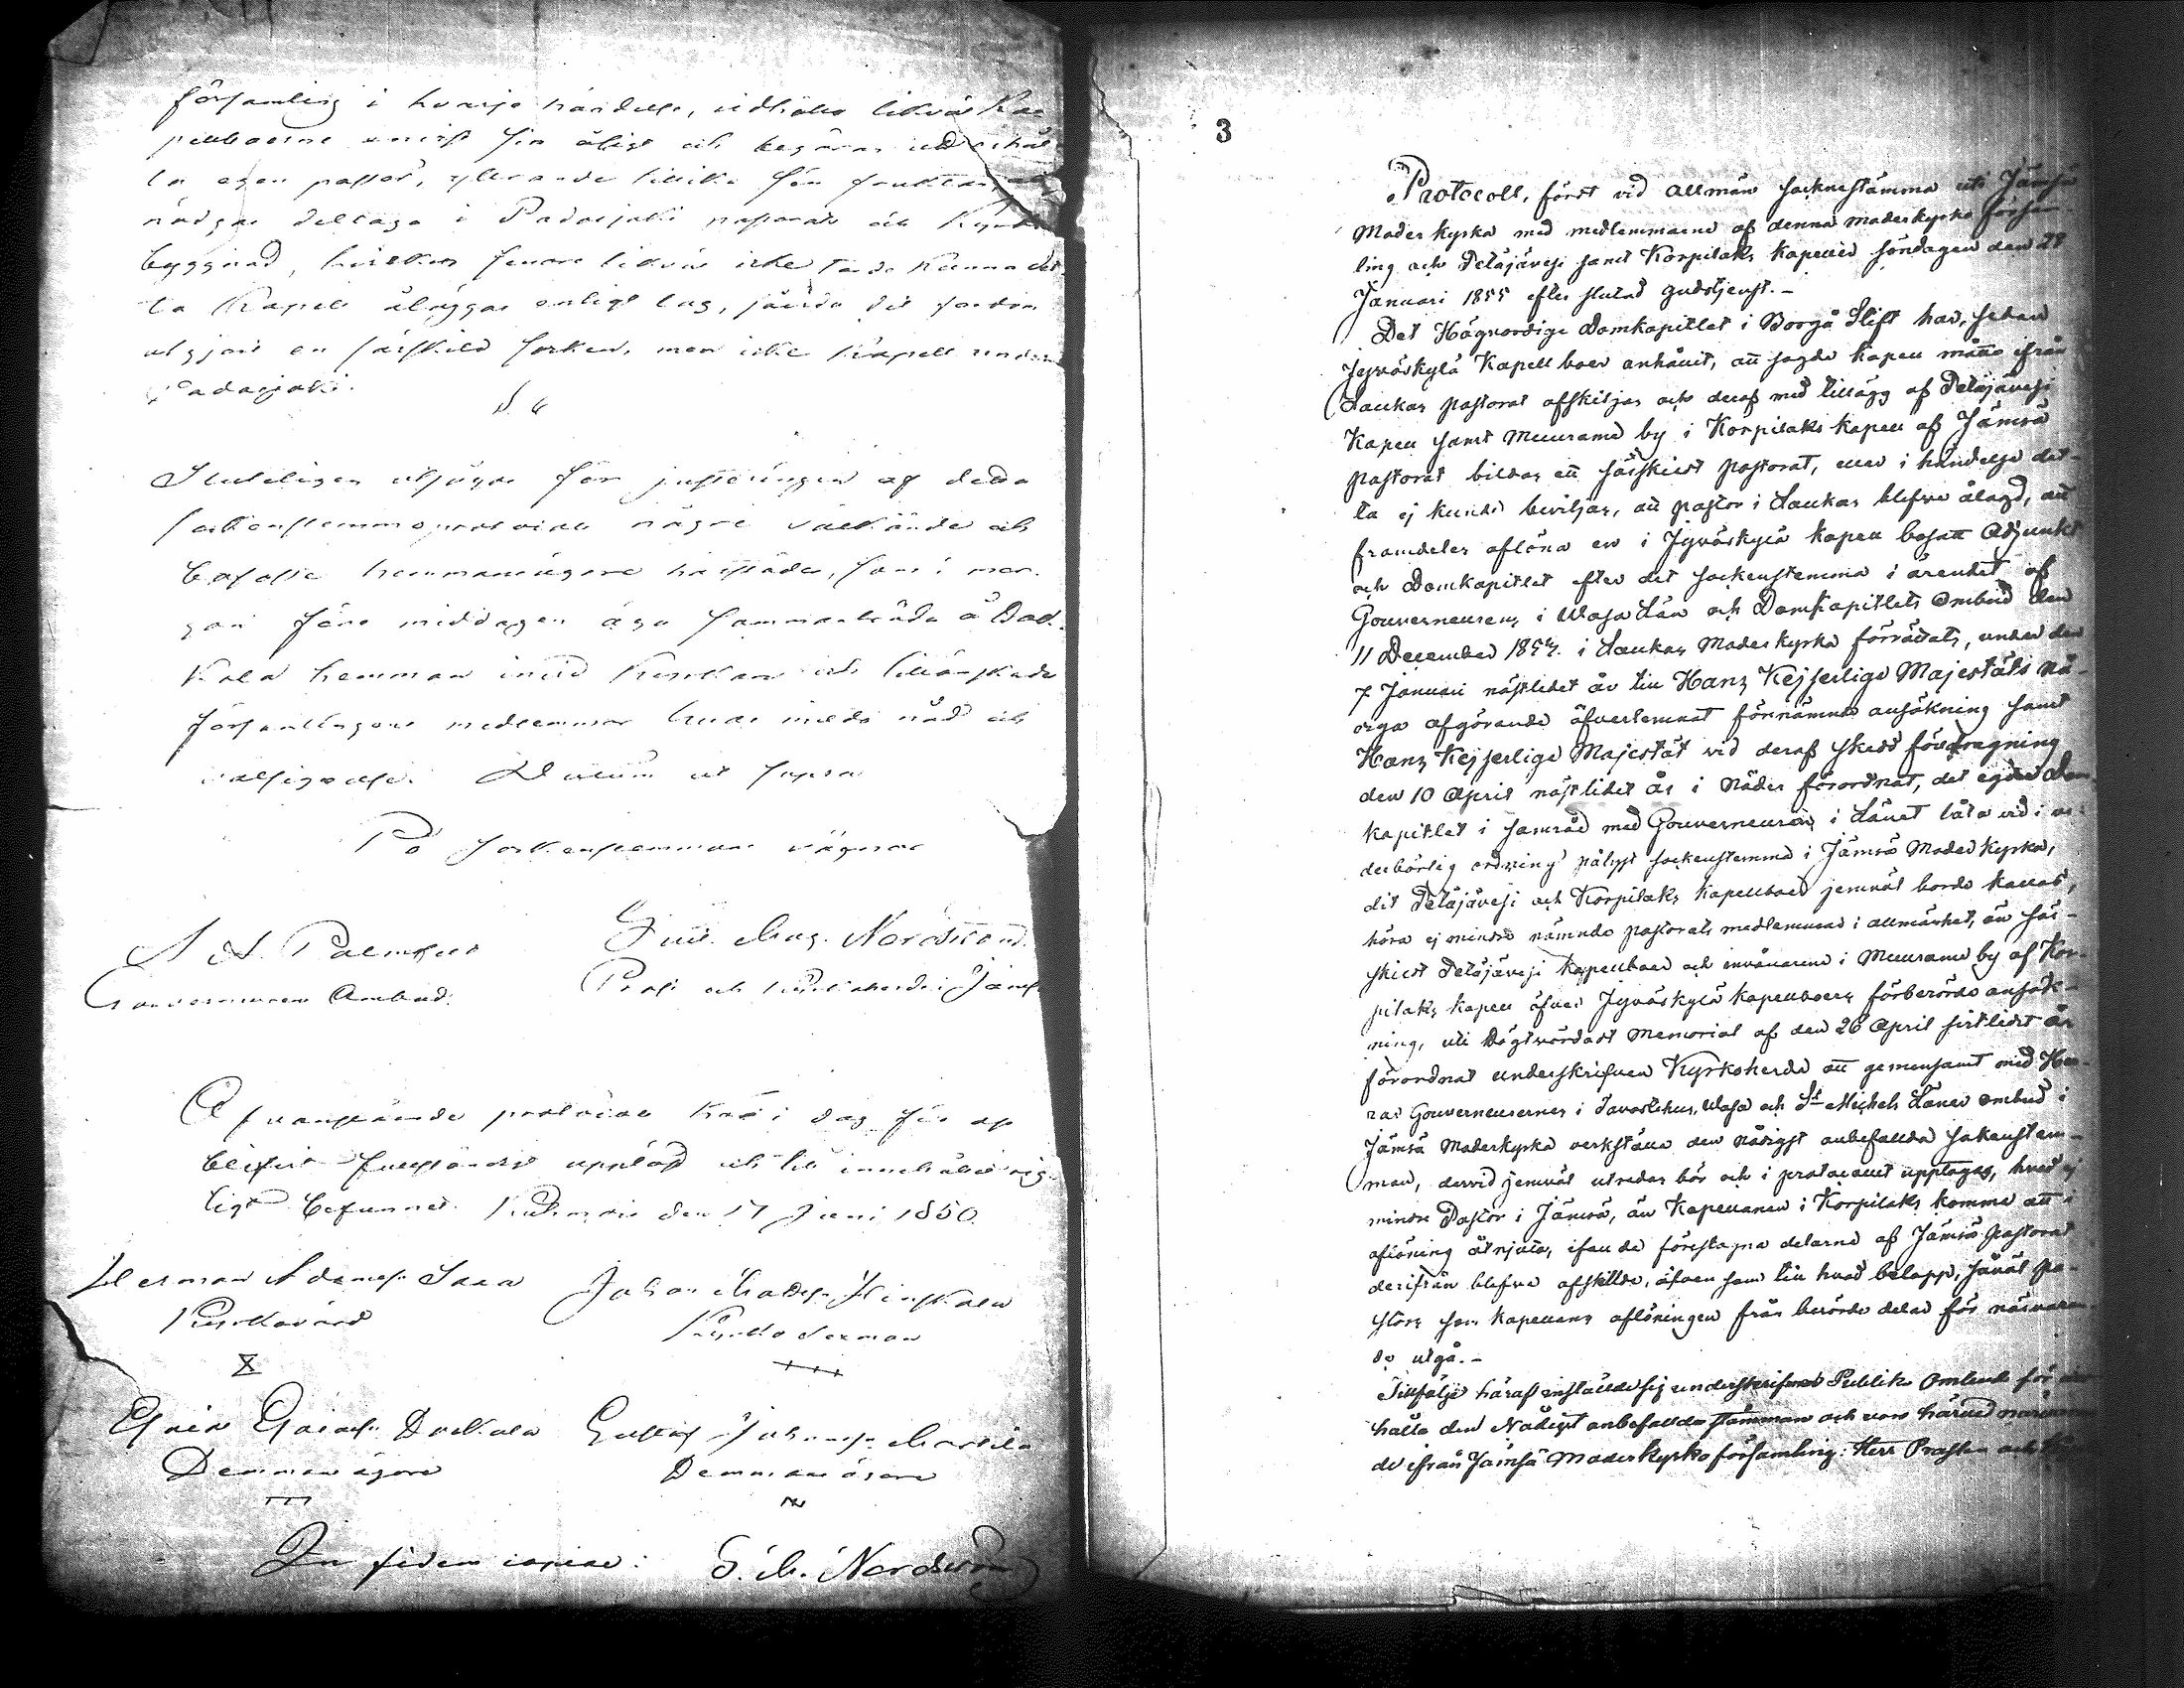 församling i hvarje händelse, vidhålla likväl Ka
pellboerne enligt sin åligt och begäran
la egen pastor, yttrande tillika sin fruktan
nödgas deltaga i Padasjoki
byggnad, hvilken senare likväl icke torde kunna det
ta Kapell åläggas enligt lag, då det fordom
utgjort en särskild socken, men icke Kapell under
Padasjoki.
§ 6
Sluteligen utsågos för justeringen af detta
sockenstemmoprotocoll några välkände och
bofaste hemmansägare härstädes, som i mor
gon före middagen äga sammanträda å
Kala hemman invid Kyrkan och tillönskades
församlingens medlemmar Guds nåd och
välsignelse. Datum ut supra
På sockenstemmans vägnar
A A Palmfelt
Gouverneurens Ombud.
Gust. Aug. Nordström.
Prost och Kyrkoherde i Jäms
Ofvanstående protocoll har i dag för oss
blifvit fullständigt uppläst och till innehållet rig
tigt befunnet. Kuhmois den 17 Juni 1850.
Herman Adamss. Saca
Kyrkovärd
Johan Mattss.
Kyrko Sexman
Hemman ägare
Gustaf Johanss. Mattila
Hemmans ägare
In fidem copiae: G. A. Nordström
3
Protocoll, fördt vid allmän sockenstämma uti Jämsä
Moder kyrka med medlemmarne af denna moderkyrko försam
ling och Petäjävesi samt Korpilaks Kapeller söndagen den 28
Januari 1855 efter slutad gudstjenst.-
Det Högvördige Domkapitlet i Borgå Stift har, sedan
Jyväskylä Kapell boer anhållit, att sagde kapell måtte ifrån
Laukas pastorat afskiljas och deraf med tillägg af Petäjävesi
Kapell samt Muurame by i Korpilaks kapell af Jämsä
pastorat bildas ett särskildt pastorat, eller i händelse det-
ta ej kunde beviljas, att pastor i Laukas blefve ålagd, att
framdeles aflöna en i Jyväskylä kapell bosatt Adjunkt
och Domkapitlet efter det sockenstemma i ärendet af
Gouverneurens i Wasa Län och Domkapitlets Ombud den
11 December 1853. i Laukas Moderkyrka förrättats, under den
7 Januari nästlidet år till Hans Kejserlige Majestäts nå-
diga afgörande öfverlemnat förnämnde ansökning samt
Hans Kejserlige Majestät vid deraf skedd föredragning
den 10 April nästlidet år i Nåder förordnat, det egde Dom
kapitlet i samråd med Gouverneuren i Länet låta vid i ve-
derbörlig ordning pålyst sockenstemma i Jämsä Moderkyrka,
dit Petäjävesi och Korpilaks kapellboer jemväl borde kallas,
höra ej mindre nämnde pastorats medlemmar i allmänhet, än sär-
skildt Petäjävesi kapellboer och invånarene i Muurame by af Kor-
pilaks kapell öfver Jyväskylä kapellboers förberörde ansök-
ning, uti Högtvördadt Memorial af den 26 April sistlidet år
förordnat underskrifven Kyrkoherde att gemensamt med Her-
rar Gouverneurernes i Tavastehus, Wasa och St Michels Länes ombud i
Jämsä Moderkyrka verkställa den nådigst anbefallda sockenstem-
man, dervid jemväl utredas bör och i protocollet upptagas, hvad ej
mindre Pastor i Jämsä, än Kapellanen i Korpilaks komme att i
aflöning åtnjuta, ifall de föreslagna delarne af Jämsä Pastorat
derifrån blefve afskillde, äfven som till hvad belopp, såväl Pa-
stors som kapellans aflöningen från berörde delar för närvaran-
de utgå.-
Tillfölje häraf inställde sig underskrifne Publike Ombud för att
hålla den Nådigst anbefallda stämman och voro härvid närvaran
de ifrån Jämsä Moderkyrko församling: Herr Prosten och